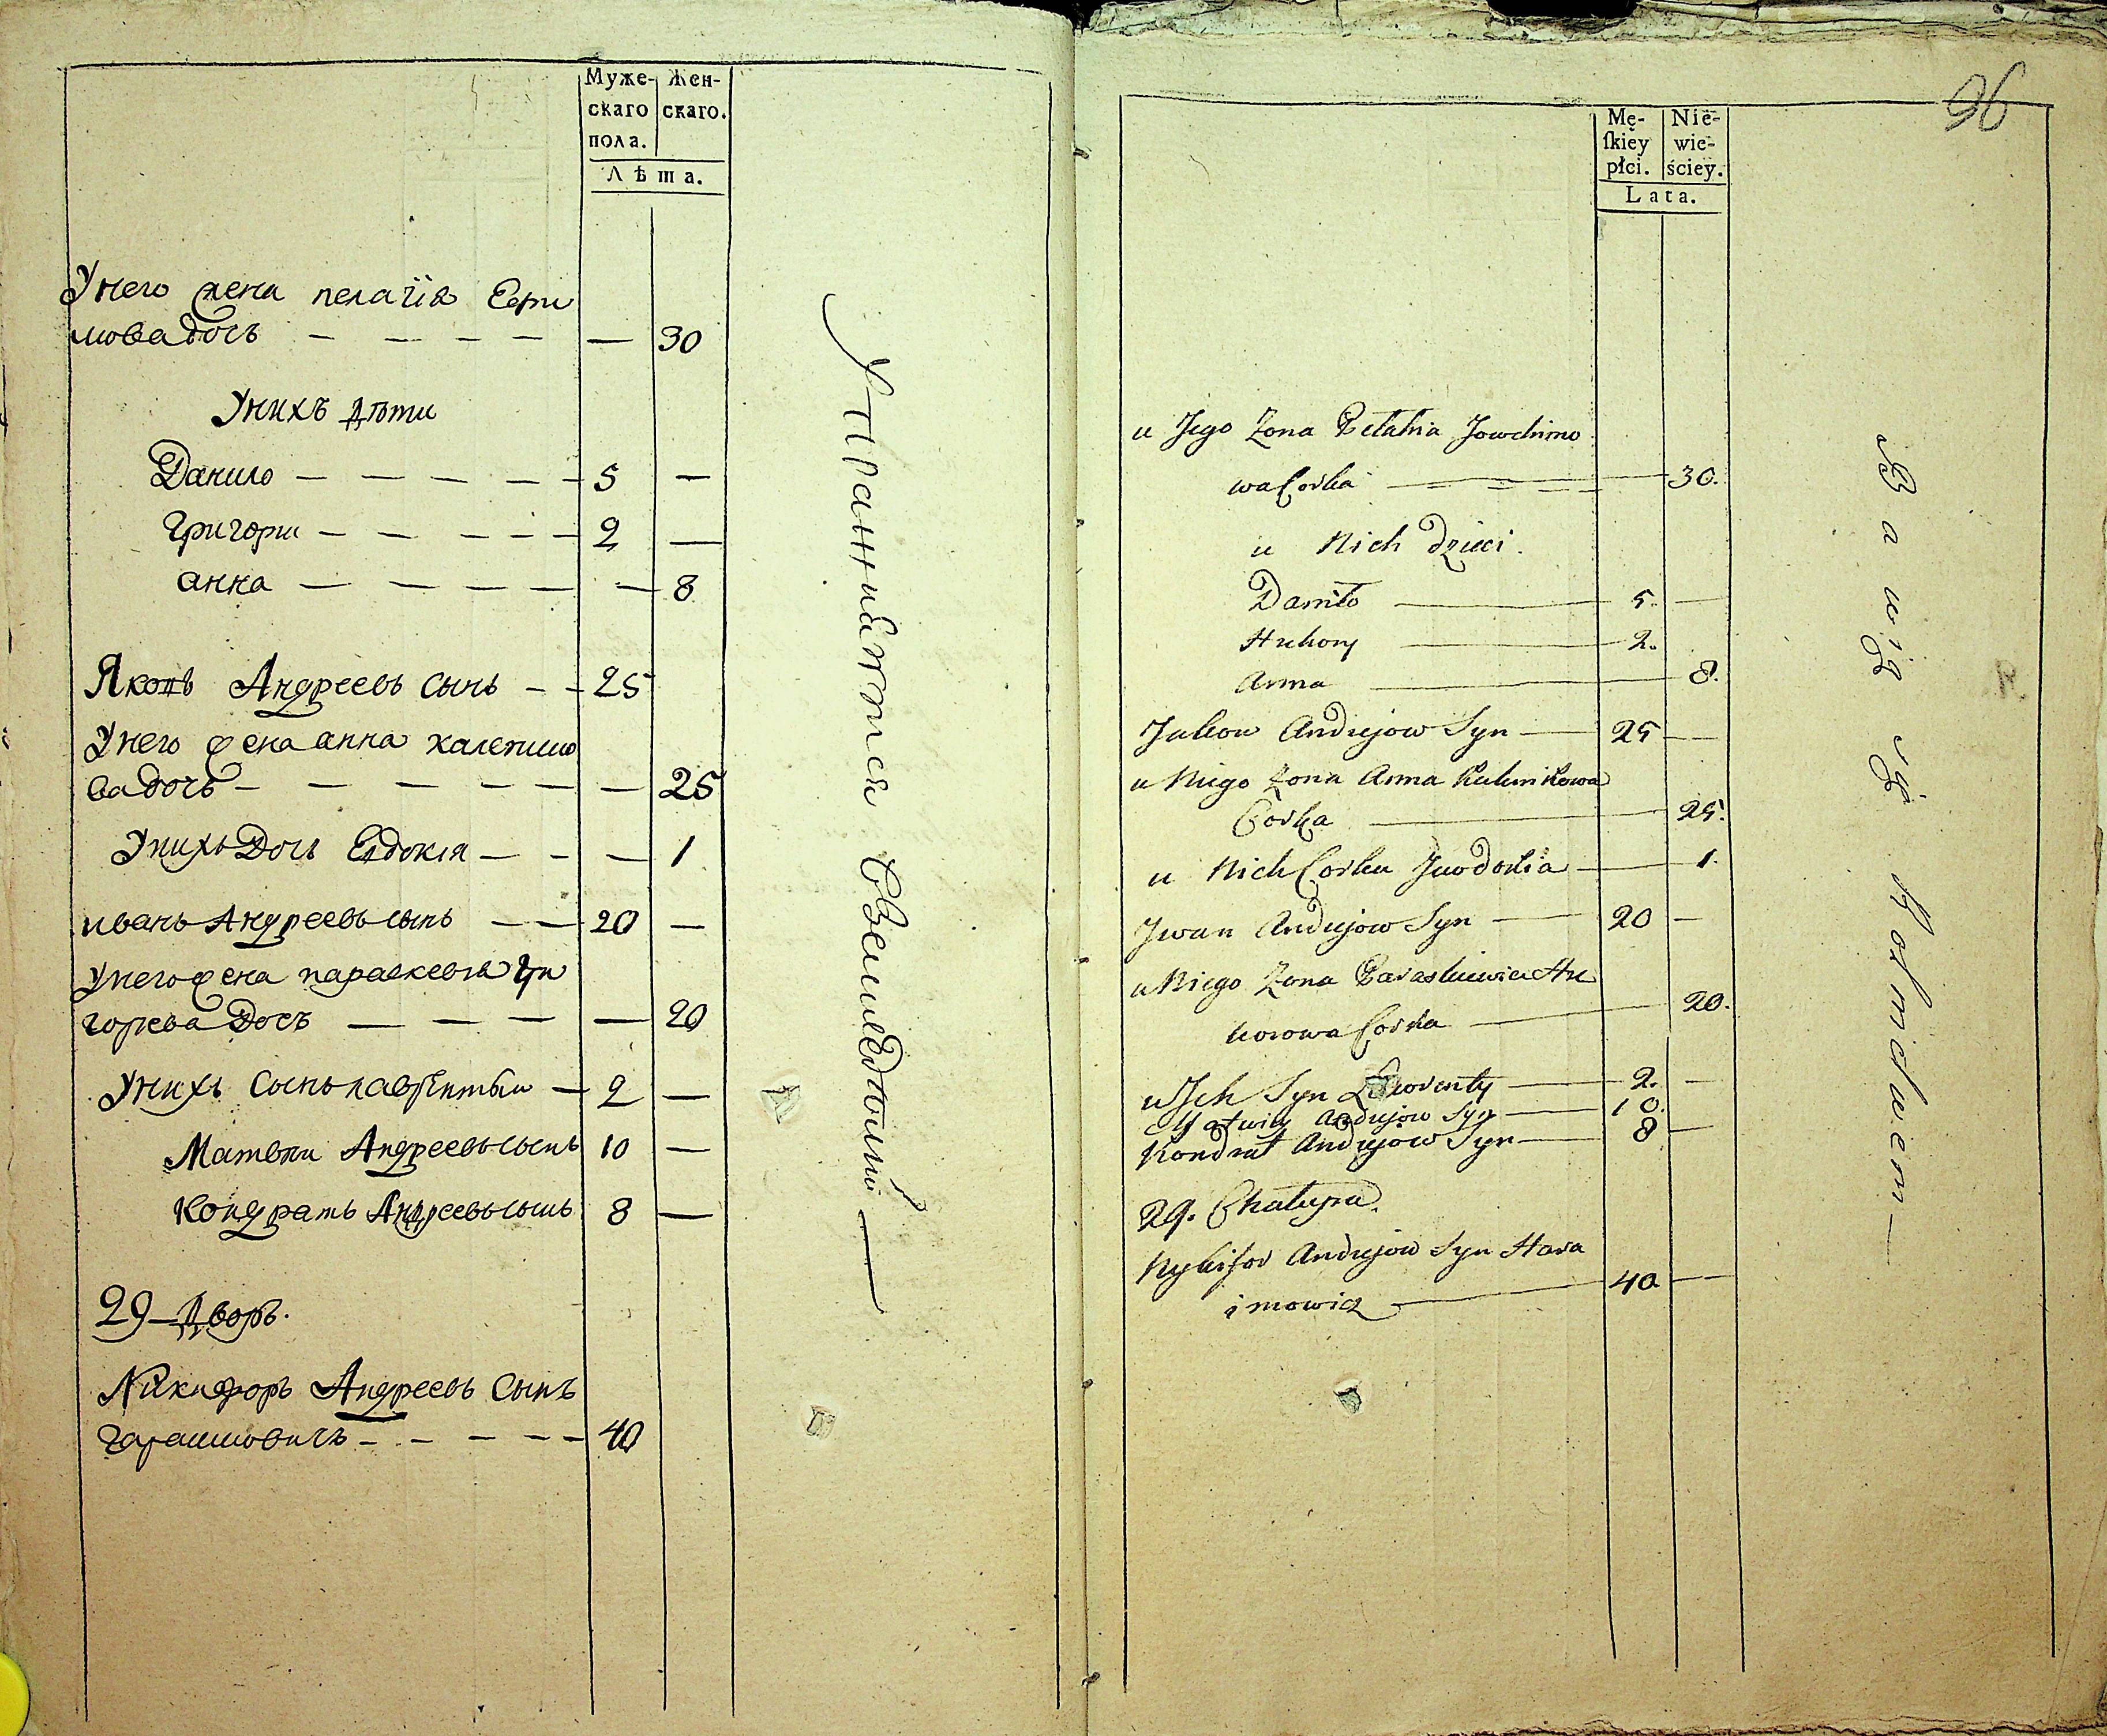 Муже-
скаго
пола.
Жен-
скаго.
Лѣта.
Унего жена пелагія Ефи
мова дочь — — — — — 30
Унихъ дѣти
Данило — — — — — 5 —
григори — — — — — 2 —
анна — — — — — — 8
Яковъ Андреевъ сынъ — — 25
Унего жена анна
ва дочь — — — — — — 25
Унихъ Дочь Евдокия — — — 1
иванъ Андреевъ сынъ — — 20 —
Унего жена параскевия гри
горева Дочь — — — — 20
Унихъ Сынъ лаврентый — 2 —
Матвѣи Андреевъ сынъ 10 —
Кондратъ Андреевъ сынъ 8 —
29 Дворъ.
Никифоръ Андреевъ Сынъ
гарасимовичъ — — — — — 40
Упражняются вземледѣлии —
96
Mę-
ſkiey
płci.
Nie-
wie-
ściey.
Lata.
u Jego Żona Pełahia Jowchimo
wa Corka — 30.
u Nich dzieci.
Daniło — 5. —
Hrehory — 2.
Anna — 8.
Jakow Andrejow Syn — 25 —
u Niego Żona Anna
Corka — 25.
u Nich Corka Jwdokia — 1.
Jwan Andrejow Syn — 20 —
u Niego Żona Paraskiewia Hre
horowa Corka — 20.
u Jch Syn Ławrenty — 2. —
Matwiey Andrejow Syn — 10.
Kondrat Andrejow Syn — 8 —
29. Chałupa.
Nykifor Andrejow Syn Hara
simowicz — 40 —
Bawią się Rolnictwem —